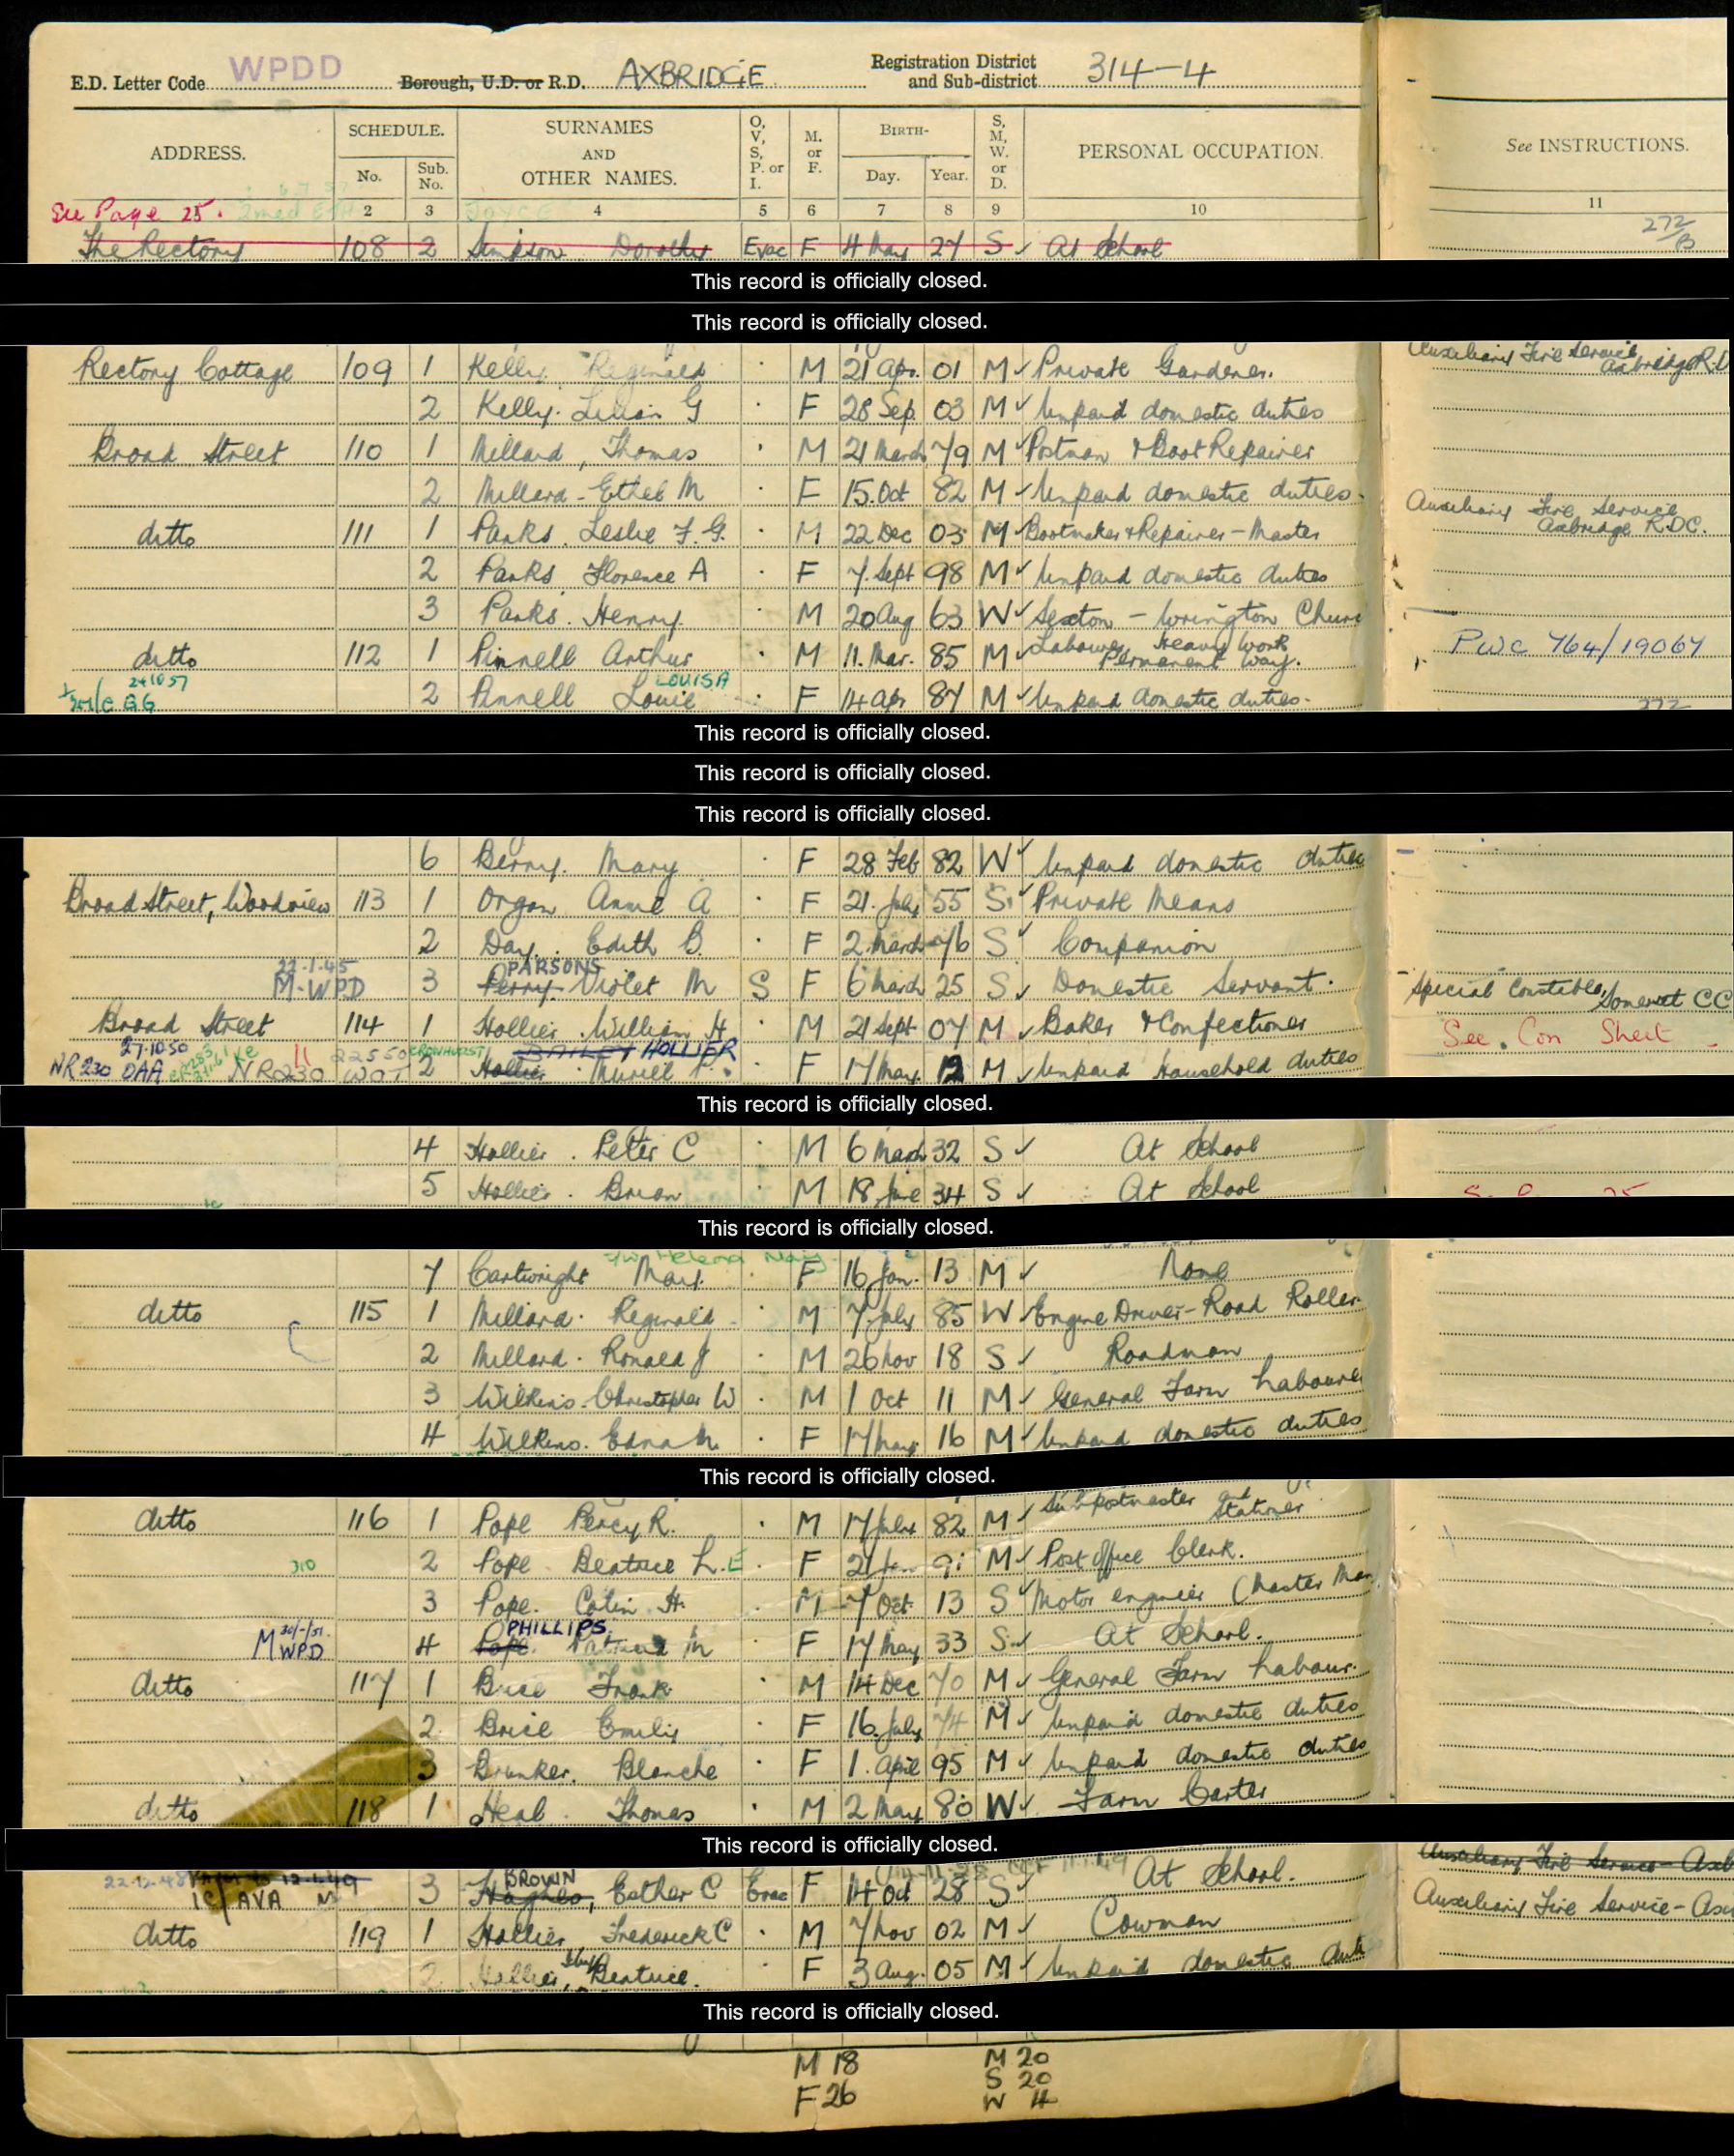 E.D. Letter Code WPDD Borough, U.D. or R.D. AXBRIDGE Registration District and Sub-district 314-4
ADDRESS. SCHEDULE. No. Sub. No. SURNAMES AND OTHER NAMES. O, V, S, P. or I. M. or F. BIRTH- Day. Year. S, M, W. or D. PERSONAL OCCUPATION. See INSTRUCTIONS.
See Page 25. 2 3 4 5 6 7 8 9 10 11
The Rectory 108 2 Simpson Dorothy Evac F 4 May 27 S At School 272/B
This record is officially closed.
This record is officially closed.
Rectory Cottage 109 1 Kelly Reginald M 21 Apr. 01 M Private Gardener. Auxiliary Fire Service Axbridge R.D
2 Kelly. Lilian G F 28 Sep. 03 M Unpaid domestic duties
Broad Street 110 1 Millard, Thomas M 21 March 79 M Postman & Boot Repairer
2 Millard - Ethel M F 15. Oct 82 M Unpaid domestic duties. Auxiliary Fire Service
ditto 111 1 Parks. Leslie F. G. M 22 Dec 03 M Bootmaker & Repairer - Master Axbridge R.D.C.
2 Parks Florence A F 7. Sept 98 M Unpaid domestic duties
3 Parks. Henry. M 20 Aug 63 W Sexton - Wrington Church
ditto 112 1 Pinnell Arthur M 11. Mar. 85 M Labourer Heavy Work Permanent Way. PWC 764/19067
241057 GG 2 Pinnell Louie LOUISA F 14 Apr 87 M Unpaid domestic duties. 272
This record is officially closed.
This record is officially closed.
This record is officially closed.
6 Berry. Mary F 28 Feb 82 W Unpaid domestic duties
Broad Street, Woodview 113 1 Organ Anne A F 21. July 55 S Private Means
2 Day. Edith B. F 2. March 76 S Companion
22.1.45 M-WPD 3 Perry PARSONS Violet M S F 6 March 25 S Domestic Servant. Special Constable, Somerset CC
Broad Street 114 1 Hollier. William H. M 21 Sept 07 M Baker & Confectioner See. Con Sheet
NR230 DAA 27.10.50 NR230 22550 WOT 2 Hollier BAILEY HOLLIER Muriel F 17 May. 12 M Unpaid Household duties
This record is officially closed.
4 Hollier. Peter C M 6 March 32 S At School
5 Hollier. Brian M 18 June 34 S At School
This record is officially closed.
7 Cartwright Mary. Helena F 16 Jan. 13 M None
ditto 115 1 Millard. Reginald M 7. July 85 W Engine Driver - Road Roller
2 Millard. Ronald J M 26 Nov 18 S Roadman
3 Wilkins. Christopher W M 1 Oct 11 M General Farm Labourer
4 Wilkins. Edna M. F 17 May 16 M Unpaid domestic duties
This record is officially closed.
ditto 116 1 Pope Percy R. M 17 July 82 M Subpostmaster and Stationer
310 2 Pope Beatrice L. E F 21 Jan 91 M Post office Clerk.
3 Pope. Colin H. M 7 Oct 13 S Motor engineer (Master Man
M 30/-/51. WPD 4 Pope PHILLIPS. Patricia M F 17 May 33 S At School.
ditto 117 1 Brice Frank M 14 Dec 70 M General Farm Labour.
2 Brice Emily F 16. July 74 M Unpaid domestic duties
3 Brunker. Blanche F 1. April 95 M Unpaid domestic duties
ditto 118 1 Heal. Thomas M 2 May 80 W Farm Carter
This record is officially closed.
22-12-48 IC/AVA M 3 Hughes, BROWN Esther C Evac F 14 Oct 28 S At School. Auxiliary Fire Service - Axb
ditto 119 1 Hollier Frederick C M 7 Nov 02 M Cowman Auxiliary Fire Service - Axb
2 Hollier, Beatrice. F 3 Aug. 05 M Unpaid domestic duti
This record is officially closed.
M 18 M 20
F 26 S 20
W 4